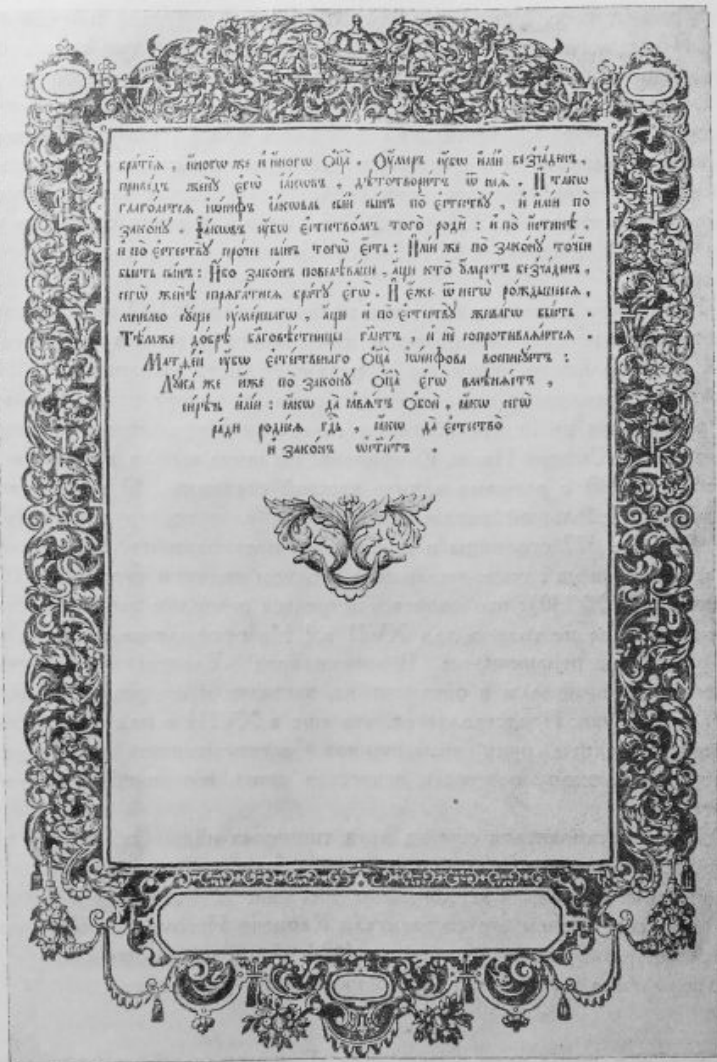 бра́тїѧ , и҆но́гѡ же и҆ и҆но́гѡ Ѻ҆ц҃а̀ . Оу҆́меръ ᲂу҆́бѡ и҆лі́и безча́денъ ,
приве́дъ женꙋ̀ є҆гѡ̀ і҆а́кѡвъ , дѣтотвори́тъ ѿ неѧ̀ . И҆ та́кѡ
глаго́летсѧ і҆ѡ́сифъ і҆а́кѡвль сы́й сы́нъ по є҆стествꙋ̀ , и҆ и҆лі́и по
зако́нꙋ . І҆а́кѡвъ ᲂу҆́бѡ є҆стество́мъ того̀ родѝ : и҆ по и҆́стинѣ ,
и҆ по є҆стествꙋ̀ про́че сы́нъ тогѡ̀ є҆́сть : И҆лі́и же по зако́нꙋ то́чїю
бы́сть сы́нъ : И҆́бо зако́нъ повелѣва́ше , а҆́ще кто̀ ᲂу҆́мретъ безча́денъ ,
сегѡ̀ женѣ̀ спрѧга́тисѧ бра́тꙋ є҆гѡ̀ . И҆ є҆́же ѿ негѡ̀ рожды́шеесѧ ,
мни́мо сꙋ́ще ᲂу҆ме́ршагѡ , а҆́ще и҆ по є҆стествꙋ̀ жива́гѡ бы́сть .
Тѣ́мже до́брѣ бл҃говѣ́стницы гл҃ютъ , и҆ не сопротивлѧ́ютсѧ .
Матѳе́й ᲂу҆́бѡ є҆сте́ственнаго Ѻ҆ц҃а̀ і҆ѡ́сифова воспису́етъ :
Лꙋка́ же и҆́же по зако́нꙋ Ѻ҆ц҃а̀ є҆гѡ̀ вмѣнѧ́етъ ,
си́рѣчь и҆лі́и : ꙗ҆́кѡ да ꙗ҆вѧ́тъ Ѻ҆бои́ , ꙗ҆́кѡ сегѡ̀
ра́ди роди́сѧ гд҇ь , ꙗ҆́кѡ да є҆стество̀
и҆ зако́нъ ѡ҆ст҃и́тъ .